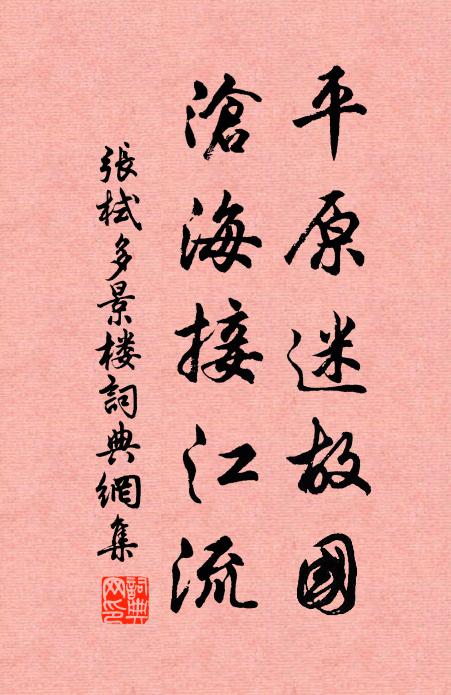 平原迷故國
滄海接江流
張栻多景楼詞典網集
詞典網印